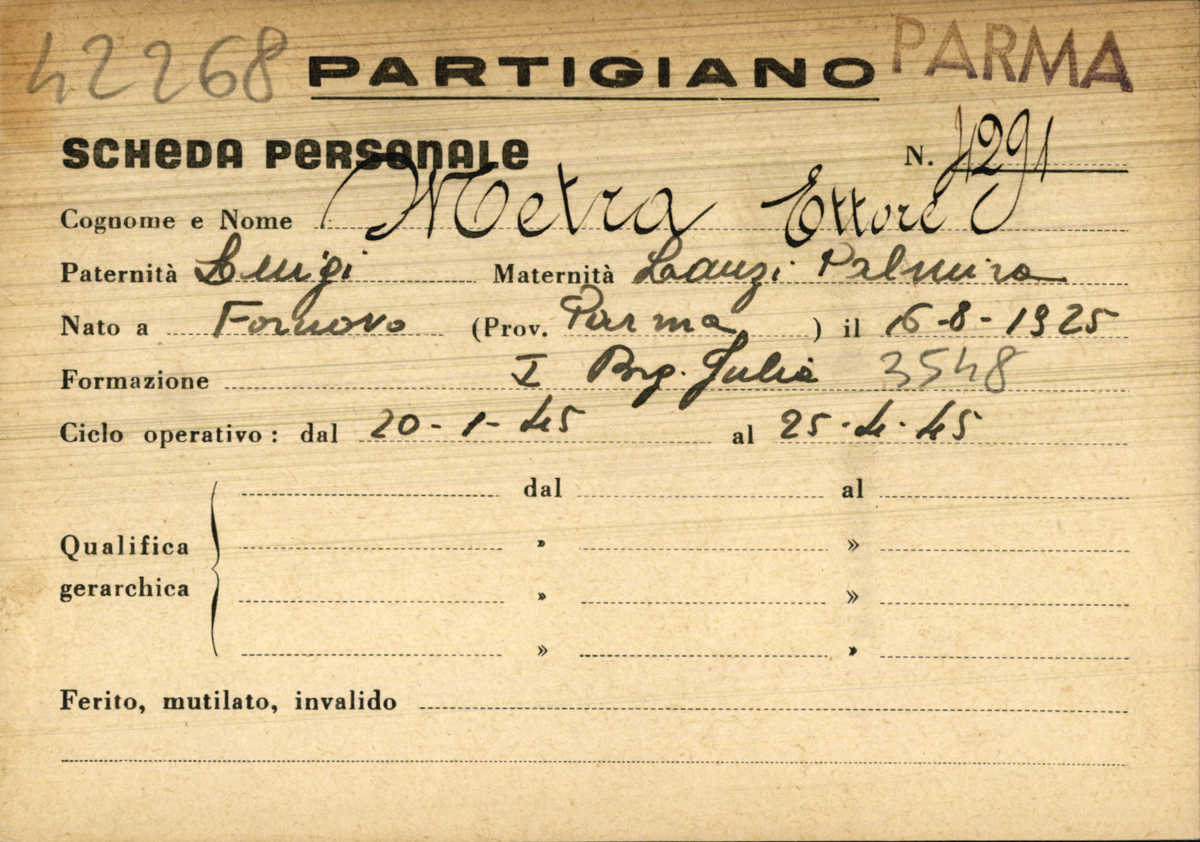 42268 PARTIGIANO PARMA
SCHEDA PERSONALE N. 4291
Cognome e Nome Metra Ettore
Paternità Luigi Maternità Lauzi Palmira
Nato a Fornovo (Prov. Parma ) il 16-8-1925
Formazione I Brg. Julia 3548
Ciclo operativo: dal 20-1-45 al 25-4-45
dal al
Qualifica gerarchica » »
» »
» »
Ferito, mutilato, invalido